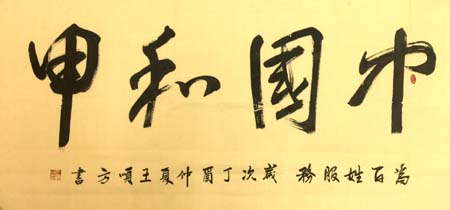 中國和甲
為百姓服務 歲次丁酉仲夏王方書